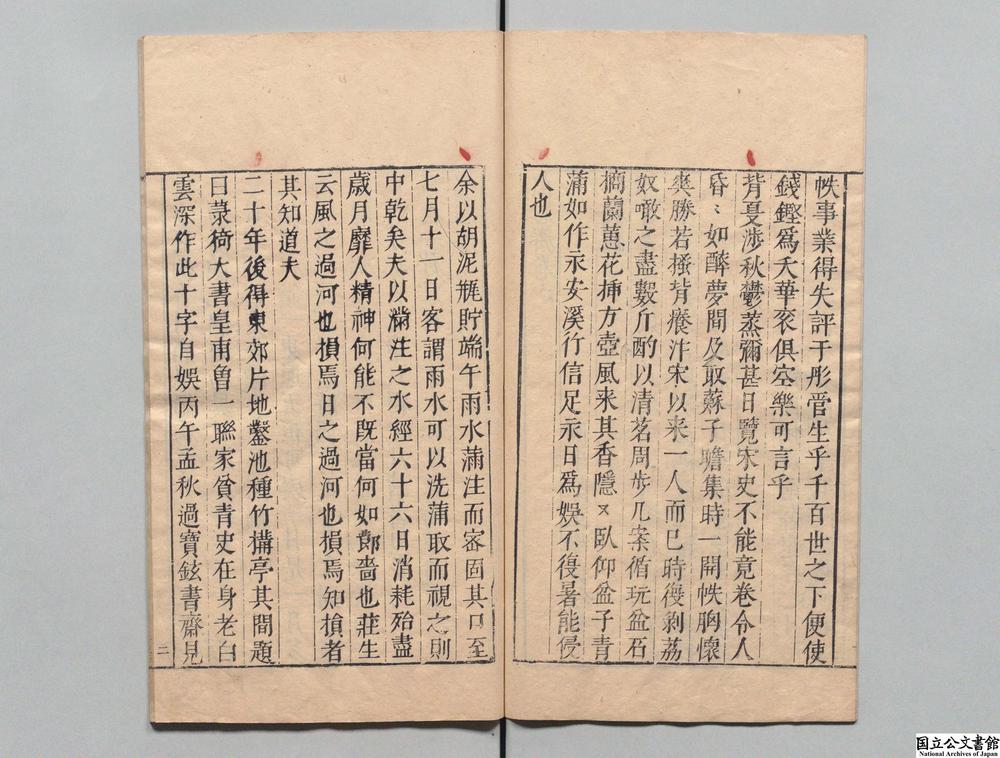 帙事業得失評于彤管生乎千百世之下便使
錢鏗爲夭華衮俱空樂可言乎
背夏涉秋鬱蒸彌甚日覽宋史不能竟卷令人
昏〻如醉夢間及取蘇子瞻集時一開帙胸懷
爽勝若搔背癢汴宋以来一人而已時復剥荔
奴噉之盡數斤酌以清茗周步几案循玩盆石
摘蘭蕙花揷方壺風来其香隱〻臥仰盆子青
蒲如作永安溪行信足永日爲娯不復暑能侵
人也
余以胡泥瓶貯端午雨水滿注而密固其口至
七月十一日客謂雨水可以洗蒲取而視之則
中乾矣夫以滿注之水經六十六日消耗殆盡
歲月靡人精神何能不旣當何如鄭嗇也莊生
云風之過河也損焉日之過河也損焉知損者
其知道夫
二十年後得東郊片地鑿池種竹搆亭其間題
曰菉猗大書皇甫曾一聯家貧青史在身老白
雲深作此十字自娯丙午孟秋過寶鉉書齋見
二
国立公文書館
National Archives of Japan